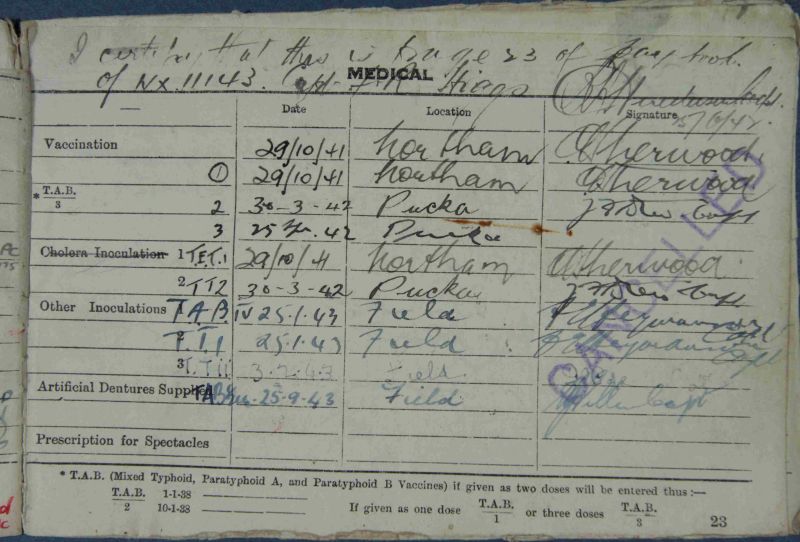 I certify that this is page 23 of pay book
of NX 11143. Capt. Higgs
MEDICAL
Date Location Signature
15/10/42
Vaccination 29/10/41 Northam Sherwood
1 29/10/41 Northam Sherwood
* T.A.B. 3 2 30-3-42 Pucka Capt
3 25 42 Pucka
Cholera Inoculation 1 T.E.T.1 29/10/41 Northam Sherwood
2 T T 2 30-3-42 Pucka Capt
Other Inoculations T.A.B. IV 25.1.43 Field
2 T.T 1 25.1.43 Field Capt
3 T.T II 3.2.43 Field
Artificial Dentures Supplied TAB 25-9-43 Field Capt
Prescription for Spectacles
CANCELLED
* T.A.B. (Mixed Typhoid, Paratyphoid A, and Paratyphoid B Vaccines) if given as two doses will be entered thus :—
T.A.B. 2 1-1-38
10-1-38
If given as one dose T.A.B. 1 or three doses T.A.B. 3
23